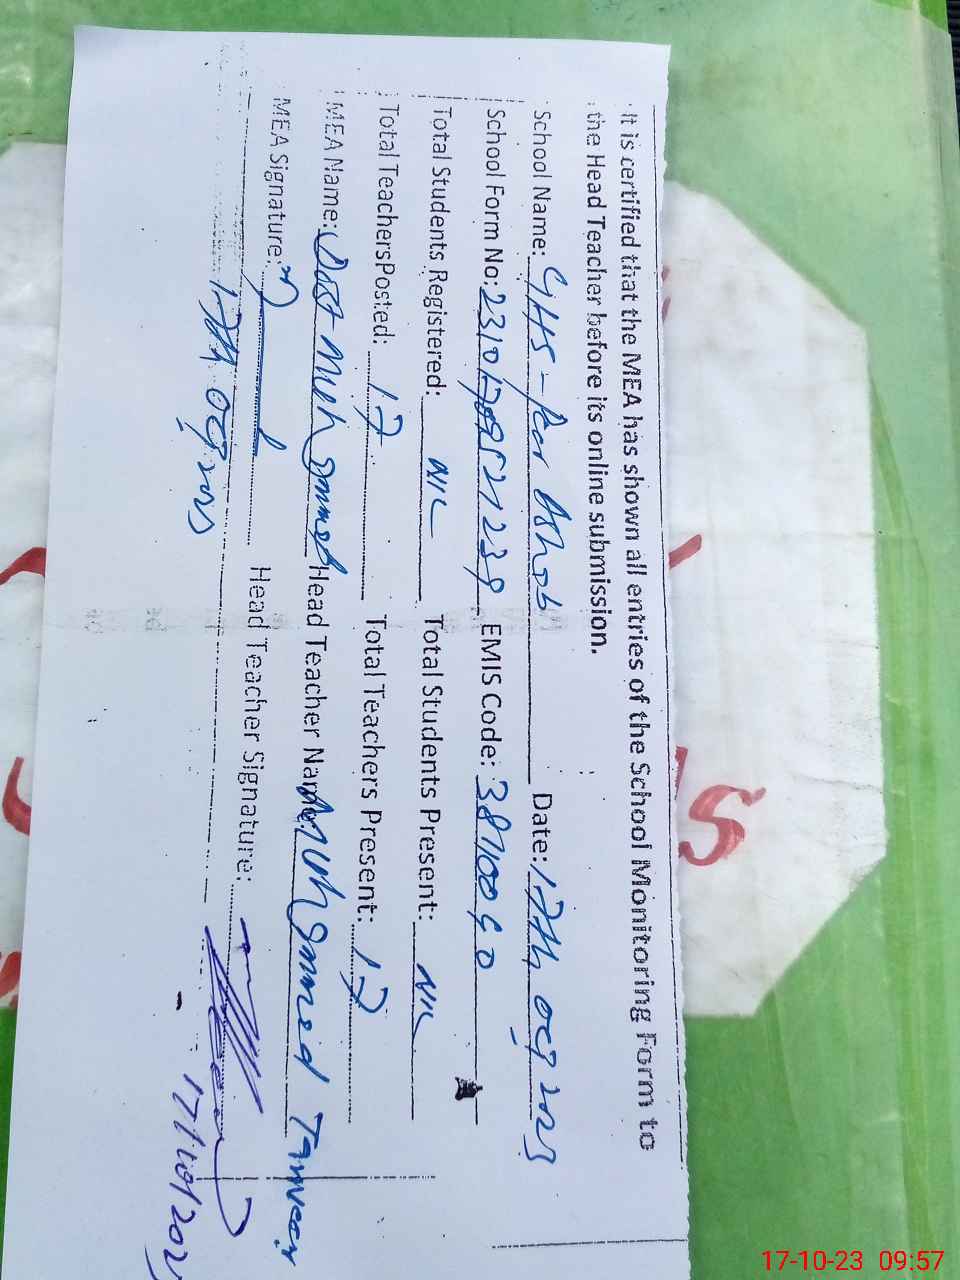 It is certified that the MEA has shown all entries of the School Monitoring Form to
the Head Teacher before its online submission.
School Name: GHS - Date: 17th Oct 2023
School Form No: EMIS Code: 38710090
Total Students Registered: NIL Total Students Present: NIL
Total Teachers Posted: 17 Total Teachers Present: 17
MEA Name: Dost Muhammad Head Teacher Name: Muhammad Tanveer
MEA Signature: Head Teacher Signature:
17th Oct 2023
17/10/202
S
17-10-23 09:57